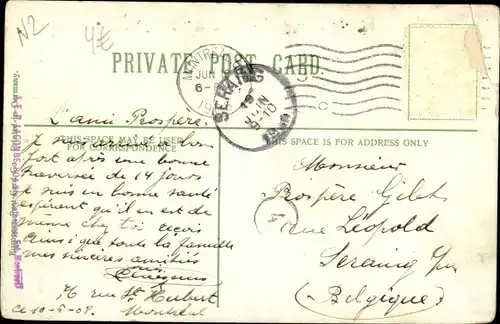 N2
4€
PRIVATE POST CARD.
MONTREAL
JUN
6-
SERAING
JUIN
9-10
THIS SPACE MAY BE USED
FOR CORRESPONDENCE
THIS SPACE IS FOR ADDRESS ONLY
L'ami Prospère.
Je suis arrivé à bon
port après une bonne
traversée de 14 jours
Je suis en bonne santé
espérant qu'il en est de
même chez toi reçois
ainsi que toute la famille
mes sincères amitiés
rue St Hubert
Ce 10-6-09. Montréal
Monsieur
Prospère Gilet
rue Léopold
Seraing s/m
(Belgique)
4
Printed in Germany.